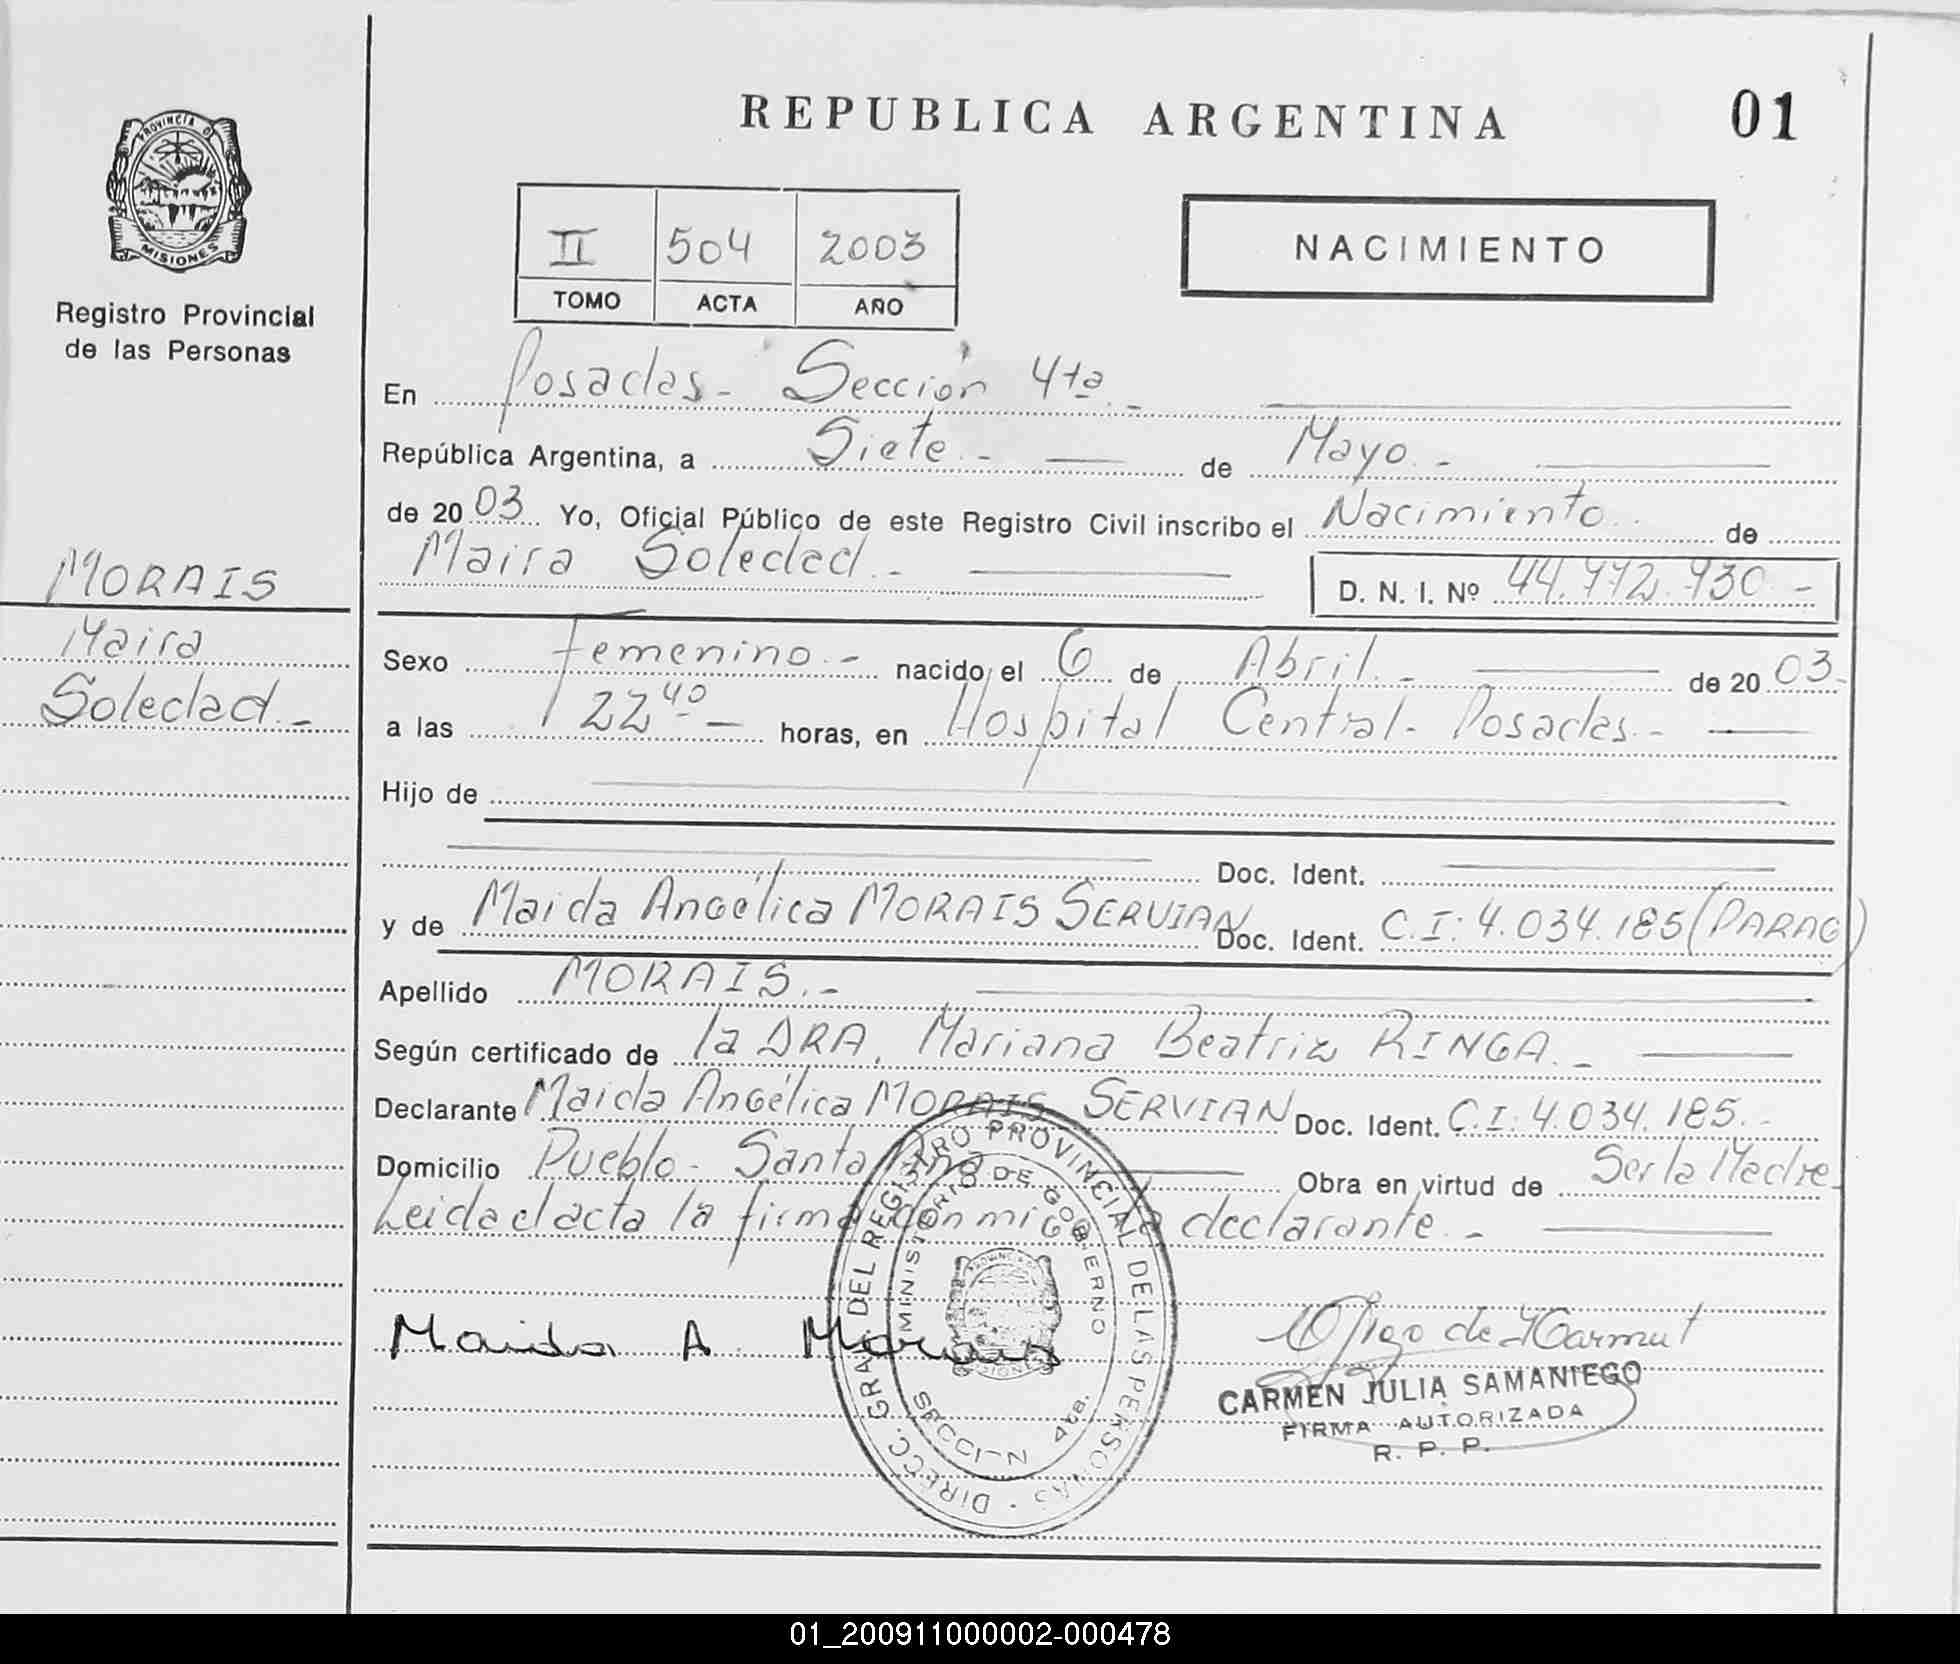 REPUBLICA ARGENTINA
01
PROVINCIA D
MISIONES
Registro Provincial
de las Personas
II 504 2003
TOMO ACTA AÑO
NACIMIENTO
En Posadas - Sección 4ta. -
República Argentina, a Siete. - de Mayo. -
de 2003 Yo, Oficial Público de este Registro Civil inscribo el Nacimiento.. de
Maira Soledad. - D. N. I. Nº 44.772.730 -
MORAIS
Maira
Soledad. -
Sexo Femenino. - nacido, el 6 de Abril. - de 2003. -
a las 22 40 - horas, en Hospital Central - Posadas. -
Hijo de
Doc. Ident.
y de Maida Angélica MORAIS SERVIAN Doc. Ident. C.I: 4.034.185 (PARAG)
Apellido MORAIS. -
Según certificado de la DRA. Mariana Beatriz RINGA. -
Declarante Maida Angélica MORAIS SERVIAN Doc. Ident. C.I: 4.034.185. -
Domicilio Pueblo - Santa Ana Obra en virtud de Ser la Madre -
Leida el acta la firma conmigo la declarante. -
DIRECC. GRAL. DEL REGISTRO PROVINCIAL DE LAS PERSONAS
MINISTERIO DE GOBIERNO
SECCI-N 4ta.
Maida A Morais
CARMEN JULIA SAMANIEGO
FIRMA AUTORIZADA
R. P. P.
01_200911000002-000478